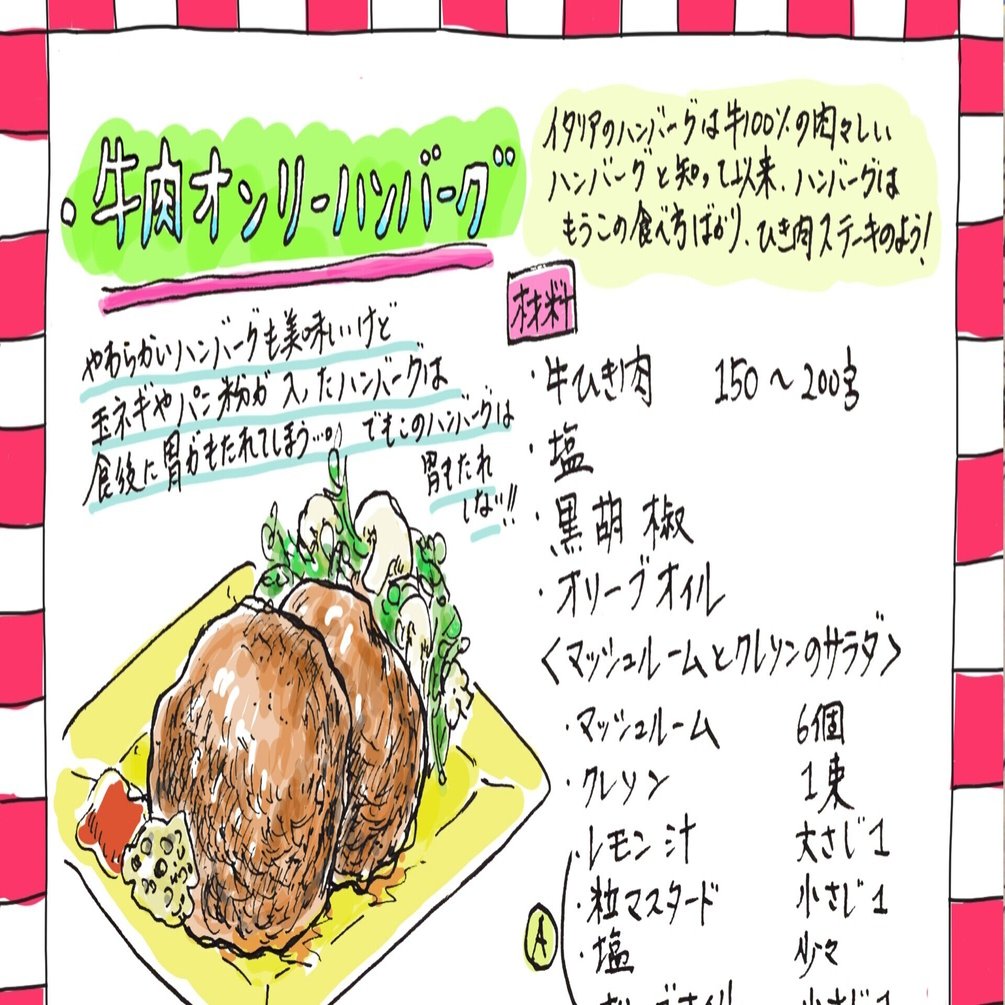 ・牛肉オンリーハンバーグ
イタリアのハンバーグは牛100%の肉々しい
ハンバーグと知って以来、ハンバーグは
もうこの食べ方ばかり、ひき肉ステーキのよう!
やわらかいハンバーグも美味しいけど
玉ネギやパン粉が入ったハンバーグは
食後に胃がもたれてしまう…。でもこのハンバーグは
胃もたれ
しない!!
材料
・牛ひき肉 150〜200g
・塩
・黒胡椒
・オリーブオイル
<マッシュルームとクレソンのサラダ>
・マッシュルーム 6個
・クレソン 1束
・レモン汁 大さじ1
・粒マスタード 小さじ1
A
・塩 少々
オリーブオイル 小さじ1